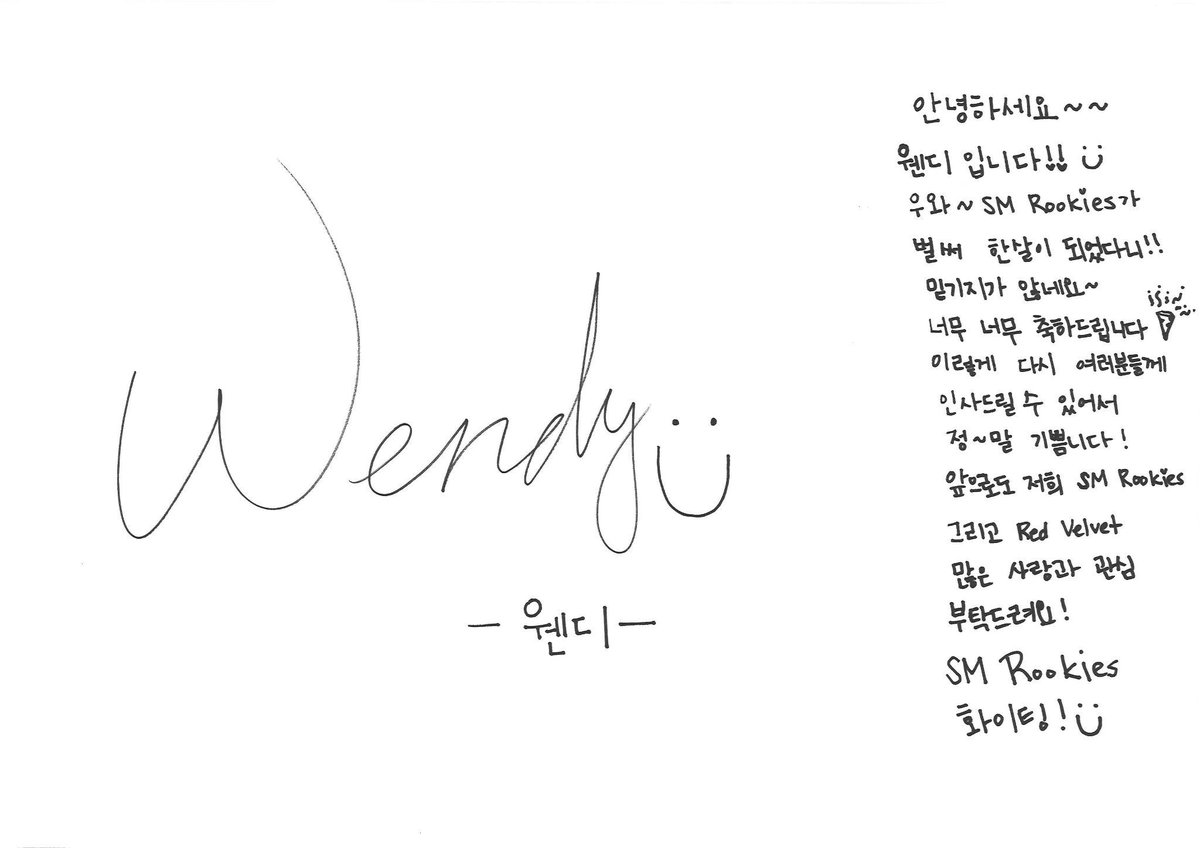 Wendy
- 웬디 -
안녕하세요~~
웬디 입니다!! :)
우와~ SM Rookies가
벌써 한살이 되었다니!!
믿기지가 않네요~
너무 너무 축하드립니다
이렇게 다시 여러분들께
인사드릴 수 있어서
정~말 기쁩니다!
앞으로도 저희 SM Rookies
그리고 Red Velvet
많은 사랑과 관심
부탁드려요!
SM Rookies
화이팅! :)